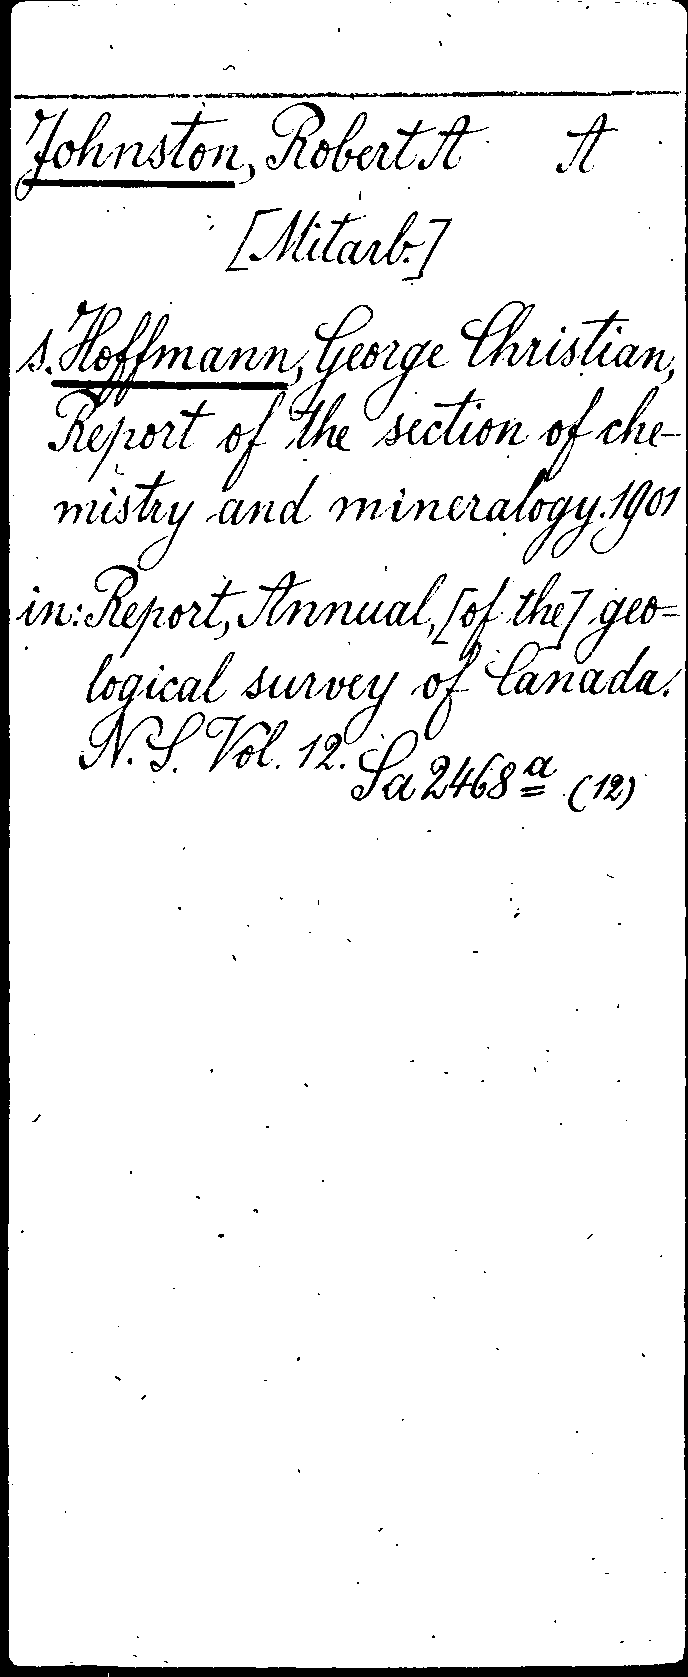 Johnston, Robert A A
[Mitarb.]
s. Hoffmann, George Christian,
Report of the section of che-
mistry and mineralogy. 1901
in: Report, Annual, [of the] geo=
logical survey of Canada.
N. S. Vol. 12.
Sa 2468ª (12)